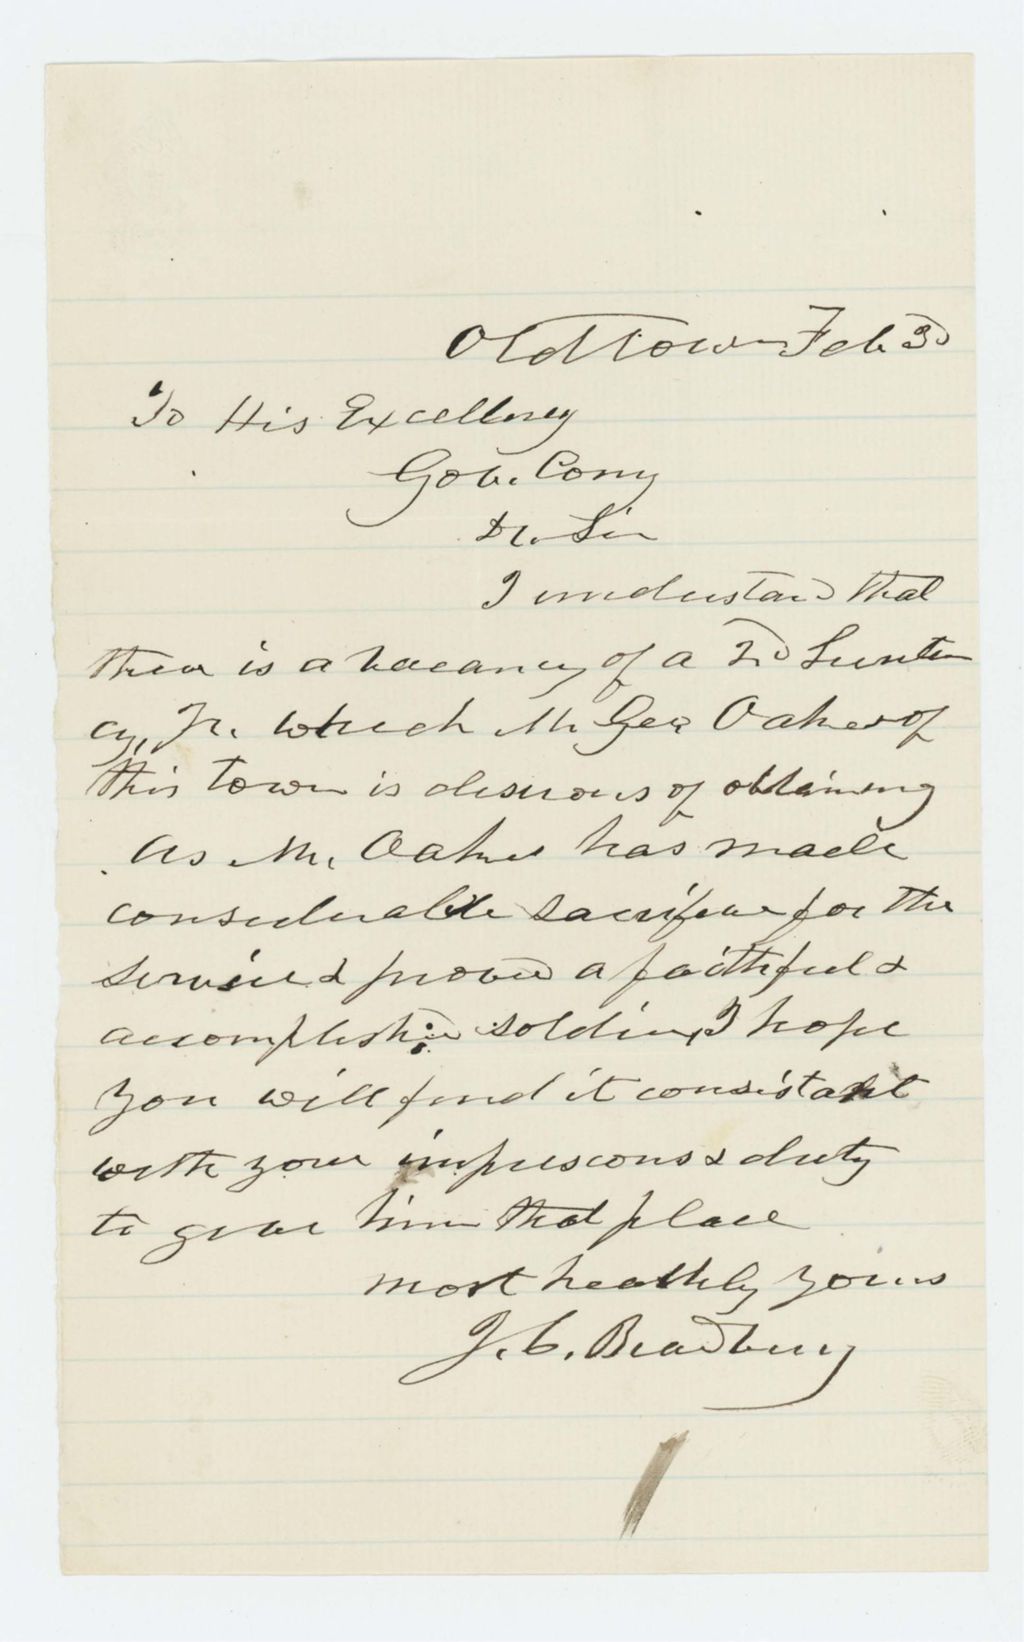 Oldtown Feb 3d
To His Excellency
Gov. Cony
Dr. Sir
I understand that
there is a vacancy of a 2d Lieuten
cy, Jr. which Mr Geo Oakes of
this town is desirous of obtaining
As Mr. Oakes has made
considerable sacrifice for the
service & proved a faithful &
accomplished soldier, I hope
you will find it consistant
with your impresions & duty
to give him that place
most heathly yours
J. C. Bradbury